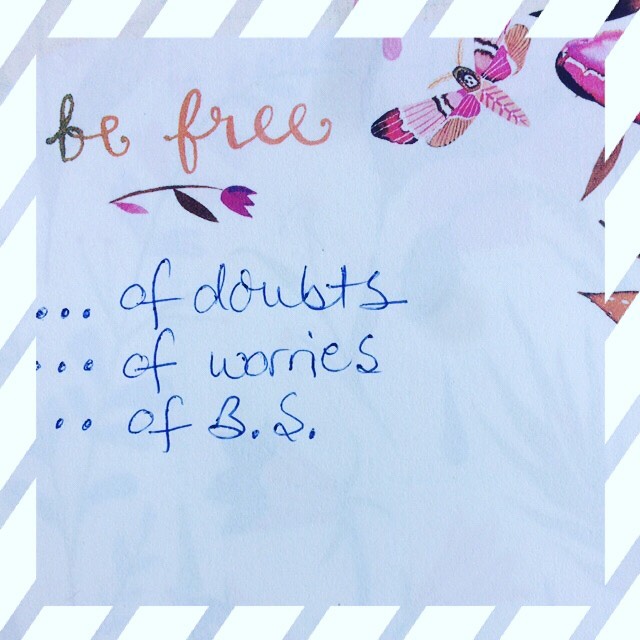 be free
... of doubts
... of worries
.. of B.S.